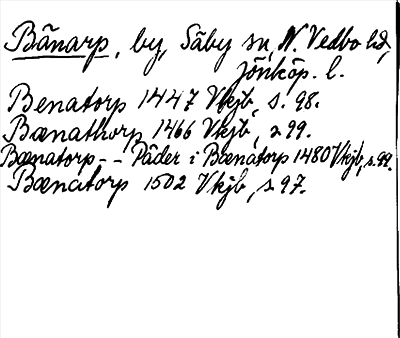 Bänarp, by, Säby sn, N. Vedbo hd,
Jönköp. l.
Benatorp 1447 Vkjb, s. 98.
Bænathorp 1466 Vkjb, s 99.
Bænatorp - - Päder i Bænatorp 1480 Vkjb, s. 99.
Bænatorp 1502 Vkjb, s 97.